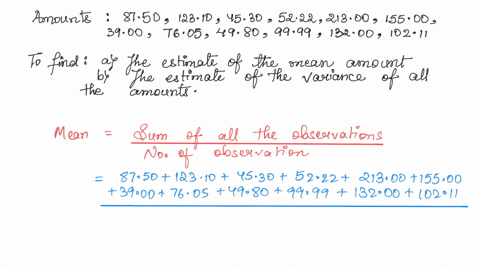 Amounts : 87.50, 123.10, 45.30, 52.22, 213.00, 155.00,
39.00, 76.05, 49.80, 99.99, 132.00, 102.11
To find: a) The estimate of the mean amount
b) The estimate of the variance of all
the amounts.
Mean = Sum of all the observations
No. of observation
= 87.50 + 123.10 + 45.30 + 52.22 + 213.00 + 155.00
+ 39.00 + 76.05 + 49.80 + 99.99 + 132.00 + 102.11